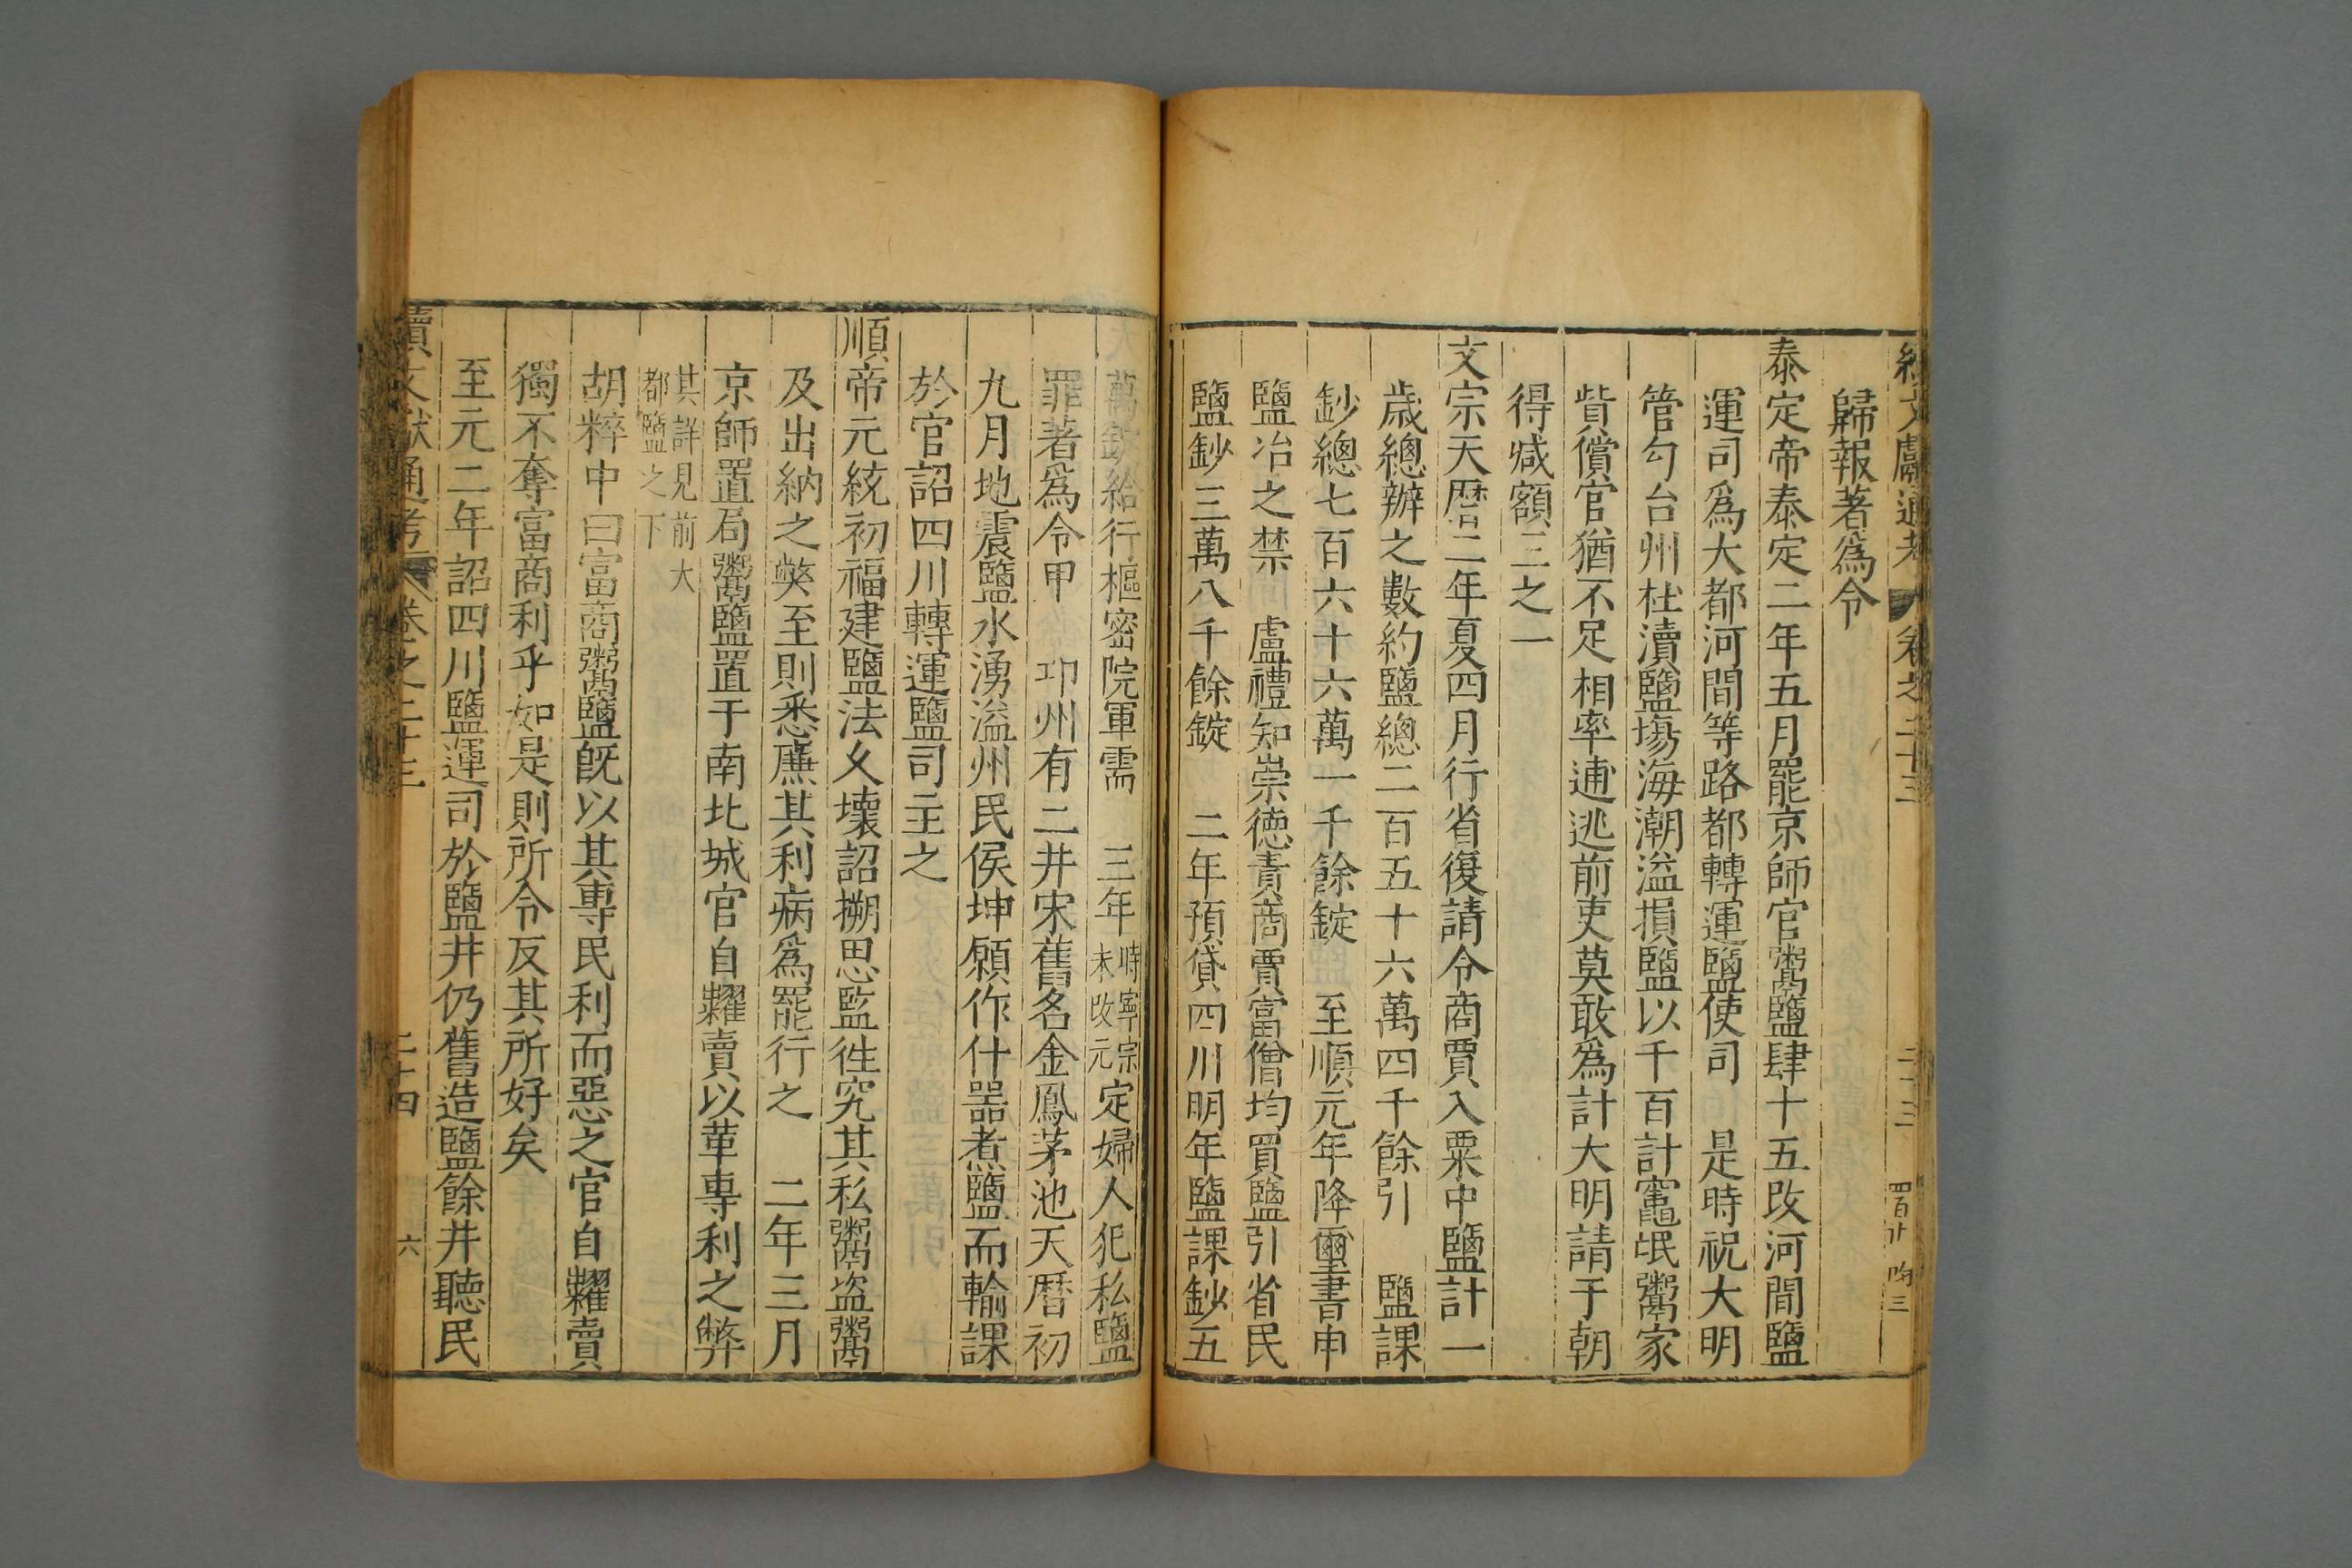 續文獻通考 卷之二十三 二十三
歸報著爲令
泰定帝泰定二年五月罷京師官鬻鹽肆十五改河間鹽
運司爲大都河間等路都轉運鹽使司 是時祝大明
管勾台州杜瀆鹽場海潮溢損鹽以千百計竈氓鬻家
貲償官猶不足相率逋逃前吏莫敢爲計大明請于朝
得减額三之一
文宗天曆二年夏四月行省復請令商賈入粟中鹽計一
歲總辦之數約鹽總二百五十六萬四千餘引 鹽課
鈔總七百六十六萬一千餘錠 至順元年降璽書申
鹽冶之禁 盧禮知崇德責商賈富僧均買鹽引省民
鹽鈔三萬八千餘錠 二年預貸四川明年鹽課鈔五
萬錠給行樞密院軍需 三年時寧宗未改元定婦人犯私鹽
罪著爲令甲 邛州有二井宋舊名金鳳茅池天曆初
九月地震鹽水湧溢州民侯坤願作什噐煮鹽而輸課
於官詔四川轉運鹽司主之
順帝元統初福建鹽法乆壊詔搠思監徃究其私鬻盗鬻
及出納之弊至則悉廉其利病爲罷行之 二年三月
京師置局鬻鹽置于南北城官自糶賣以革專利之弊
其詳見前大
都鹽之下
胡粹中曰富商鬻鹽旣以其專民利而惡之官自糶賣
獨不奪富商利乎如是則所令反其所好矣
至元二年詔四川鹽運司於鹽井仍舊造鹽餘井聽民
續文獻通考 卷之二十三 二十四 六